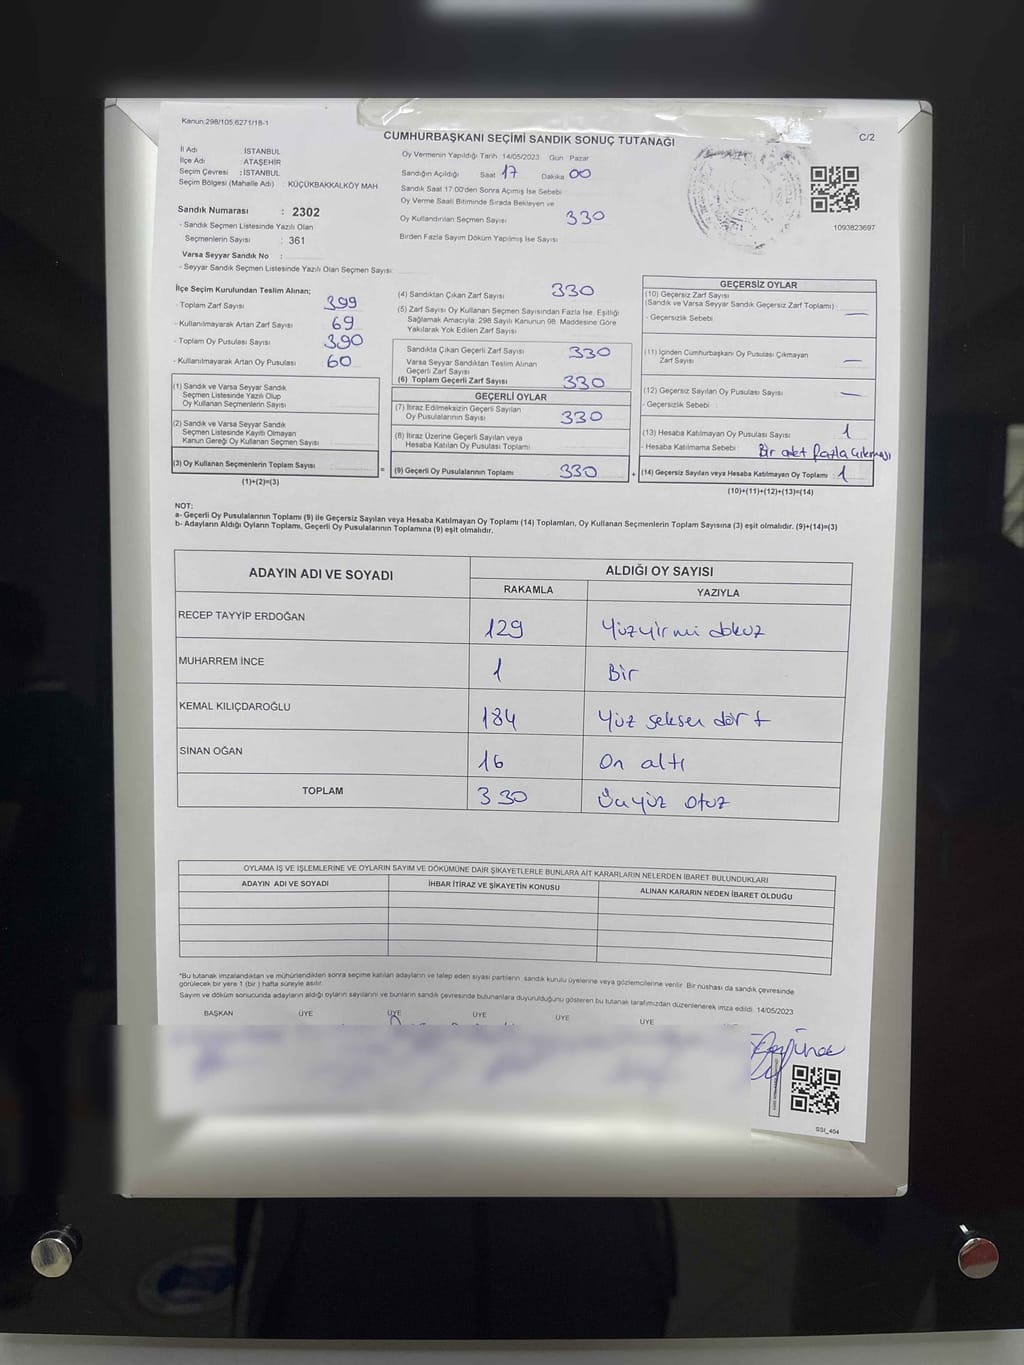 Kanun;298/105,6271/18-1
CUMHURBAŞKANI SEÇİMİ SANDIK SONUÇ TUTANAĞI
C/2
İl Adı İSTANBUL
İlçe Adı ATAŞEHİR
Seçim Çevresi : İSTANBUL
Seçim Bölgesi (Mahalle Adı) : KÜÇÜKBAKKALKÖY MAH
Sandık Numarası : 2302
- Sandık Seçmen Listesinde Yazılı Olan
Seçmenlerin Sayısı : 361
Varsa Seyyar Sandık No :
- Seyyar Sandık Seçmen Listesinde Yazılı Olan Seçmen Sayısı:
Oy Vermenin Yapıldığı Tarih 14/05/2023 Gün Pazar
Sandığın Açıldığı Saat 17 Dakika 00
Sandık Saat 17.00'den Sonra Açımış İse Sebebi
Oy Verme Saati Bitiminde Sırada Bekleyen ve
Oy Kullandırılan Seçmen Sayısı 330
Birden Fazla Sayım Döküm Yapılmış İse Sayısı
1093823697
İlçe Seçim Kurulundan Teslim Alınan;
- Toplam Zarf Sayısı 399
- Kullanılmayarak Artan Zarf Sayısı 69
- Toplam Oy Pusulası Sayısı 390
- Kullanılmayarak Artan Oy Pusulası 60
(1) Sandık ve Varsa Seyyar Sandık
Seçmen Listesinde Yazılı Olup
Oy Kullanan Seçmenlerin Sayısı
(2) Sandık ve Varsa Seyyar Sandık
Seçmen Listesinde Kayıtlı Olmayan
Kanun Gereği Oy Kullanan Seçmen Sayısı
(3) Oy Kullanan Seçmenlerin Toplam Sayısı =
(1)+(2)=(3)
(4) Sandıktan Çıkan Zarf Sayısı 330
(5) Zarf Sayısı Oy Kullanan Seçmen Sayısından Fazla İse, Eşitliği
Sağlamak Amacıyla; 298 Sayılı Kanunun 98. Maddesine Göre
Yakılarak Yok Edilen Zarf Sayısı
Sandıkta Çıkan Geçerli Zarf Sayısı 330
Varsa Seyyar Sandıktan Teslim Alınan
Geçerli Zarf Sayısı
(6) Toplam Geçerli Zarf Sayısı 330
GEÇERLİ OYLAR
(7) İtiraz Edilmeksizin Geçerli Sayılan
Oy Pusulalarının Sayısı 330
(8) İtiraz Üzerine Geçerli Sayılan veya
Hesaba Katılan Oy Pusulası Toplamı
(9) Geçerli Oy Pusulalarının Toplamı 330 +
GEÇERSİZ OYLAR
(10) Geçersiz Zarf Sayısı
(Sandık ve Varsa Seyyar Sandık Geçersiz Zarf Toplamı) : —
- Geçersizlik Sebebi :
(11) İçinden Cumhurbaşkanı Oy Pusulası Çıkmayan
Zarf Sayısı —
(12) Geçersiz Sayılan Oy Pusulası Sayısı : —
- Geçersizlik Sebebi :
(13) Hesaba Katılmayan Oy Pusulası Sayısı : 1
- Hesaba Katılmama Sebebi : Bir adet fazla çıkması
(14) Geçersiz Sayılan veya Hesaba Katılmayan Oy Toplamı : 1
(10)+(11)+(12)+(13)=(14)
NOT:
a- Geçerli Oy Pusulalarının Toplamı (9) ile Geçersiz Sayılan veya Hesaba Katılmayan Oy Toplamı (14) Toplamları, Oy Kullanan Seçmenlerin Toplam Sayısına (3) eşit olmalıdır. (9)+(14)=(3)
b- Adayların Aldığı Oyların Toplamı, Geçerli Oy Pusulalarının Toplamına (9) eşit olmalıdır.
ADAYIN ADI VE SOYADI
ALDIĞI OY SAYISI
RAKAMLA YAZIYLA
RECEP TAYYİP ERDOĞAN 129 Yüzyirmi dokuz
MUHARREM İNCE 1 Bir
KEMAL KILIÇDAROĞLU 184 Yüz seksen dört
SİNAN OĞAN 16 On altı
TOPLAM 330 Üçyüz otuz
OYLAMA İŞ VE İŞLEMLERİNE VE OYLARIN SAYIM VE DÖKÜMÜNE DAİR ŞİKAYETLERLE BUNLARA AİT KARARLARIN NELERDEN İBARET BULUNDUKLARI
ADAYIN ADI VE SOYADI İHBAR İTİRAZ VE ŞİKAYETİN KONUSU ALINAN KARARIN NEDEN İBARET OLDUĞU
*Bu tutanak imzalandıktan ve mühürlendikten sonra seçime katılan adayların ve talep eden siyasi partilerin sandık kurulu üyelerine veya gözlemcilerine verilir. Bir nüshası da sandık çevresinde
görülecek bir yere 1 (bir ) hafta süreyle asılır.
Sayım ve döküm sonucunda adayların aldığı oyların sayılarını ve bunların sandık çevresinde bulunanlara duyurulduğunu gösteren bu tutanak tarafımızdan düzenlenerek imza edildi. 14/05/2023
BAŞKAN ÜYE ÜYE ÜYE ÜYE ÜYE
SSI_404